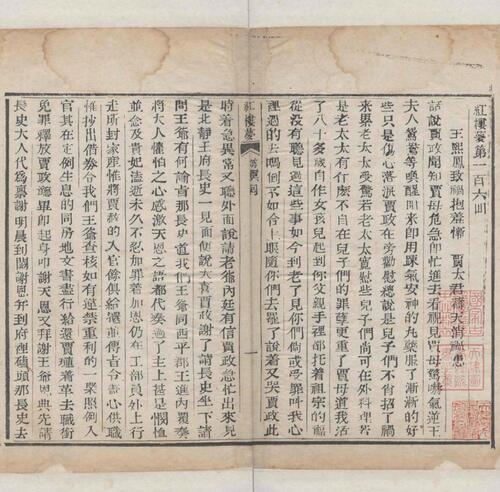 紅樓夢第一百六回
王熙鳳致禍抱羞慚 賈太君禱天消禍患
話說賈政聞知賈母危急即忙進去看視見賈母驚嚇氣逆王
夫人鴛鴦等喚醒回來即用踈氣安神的丸藥服了漸漸的好
些只是傷心落淚賈政在旁勸慰總說是兒子們不肖招了禍
來累老太太受驚若老太太寬慰些兒子們尚可在外料理若
是老太太有什麽不自在兒子們的罪孽更重了賈母道我活
了八十多歲自作女孩兒起到你父親手裡都托着祖宗的福
從沒有聽見過這些事如今到老了見你們倘或受罪叫我心
裡過的去嗎倒不如合上眼隨你們去罷了說着又哭賈政此
紅樓夢
一
時着急異常又聽外面說請老爺內廷有信賈政急忙出來見
是北靜王府長史一見面便說大喜賈政謝了請長史坐下請
問王爺有何諭旨那長史道我們王爺同西平郡王進內覆奏
將大人懼怕之心感激天恩之語都代奏過了主上甚是憫恤
並念及貴妃溘逝未久不忍加罪着加恩仍在工部員外上行
走所封家產惟將賈赦的入官餘俱給還並傳旨令盡心供職
惟抄出借券令我們王爺查核如有違禁重利的一槩照例入
官其在定例生息的同房地文書盡行給還賈璉着革去職銜
免罪釋放賈政聽畢即起身叩謝天恩又拜謝王爺恩典先請
長史大人代為禀謝明晨到闕謝恩并到府裡磕頭那長史去